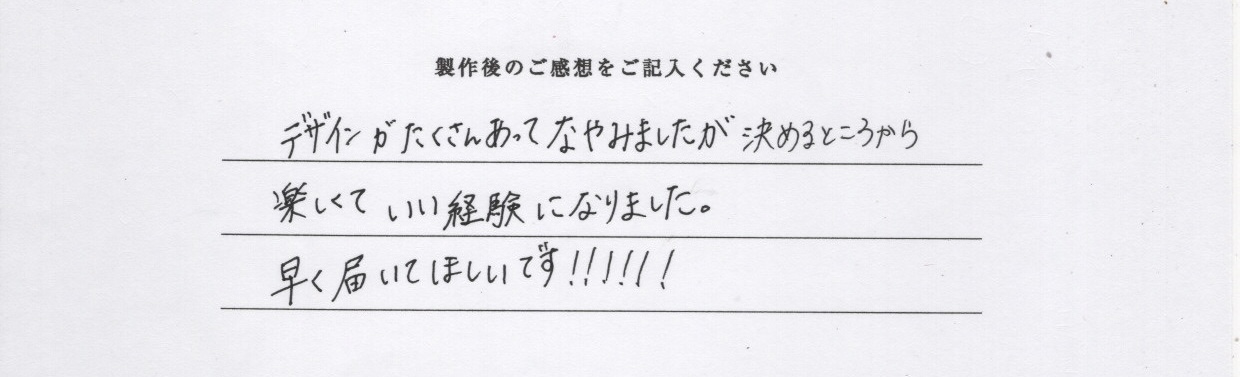 製作後のご感想をご記入ください
デザインがたくさんあってなやみましたが決めるところから
楽しくていい経験になりました。
早く届いてほしいです!!!!!!